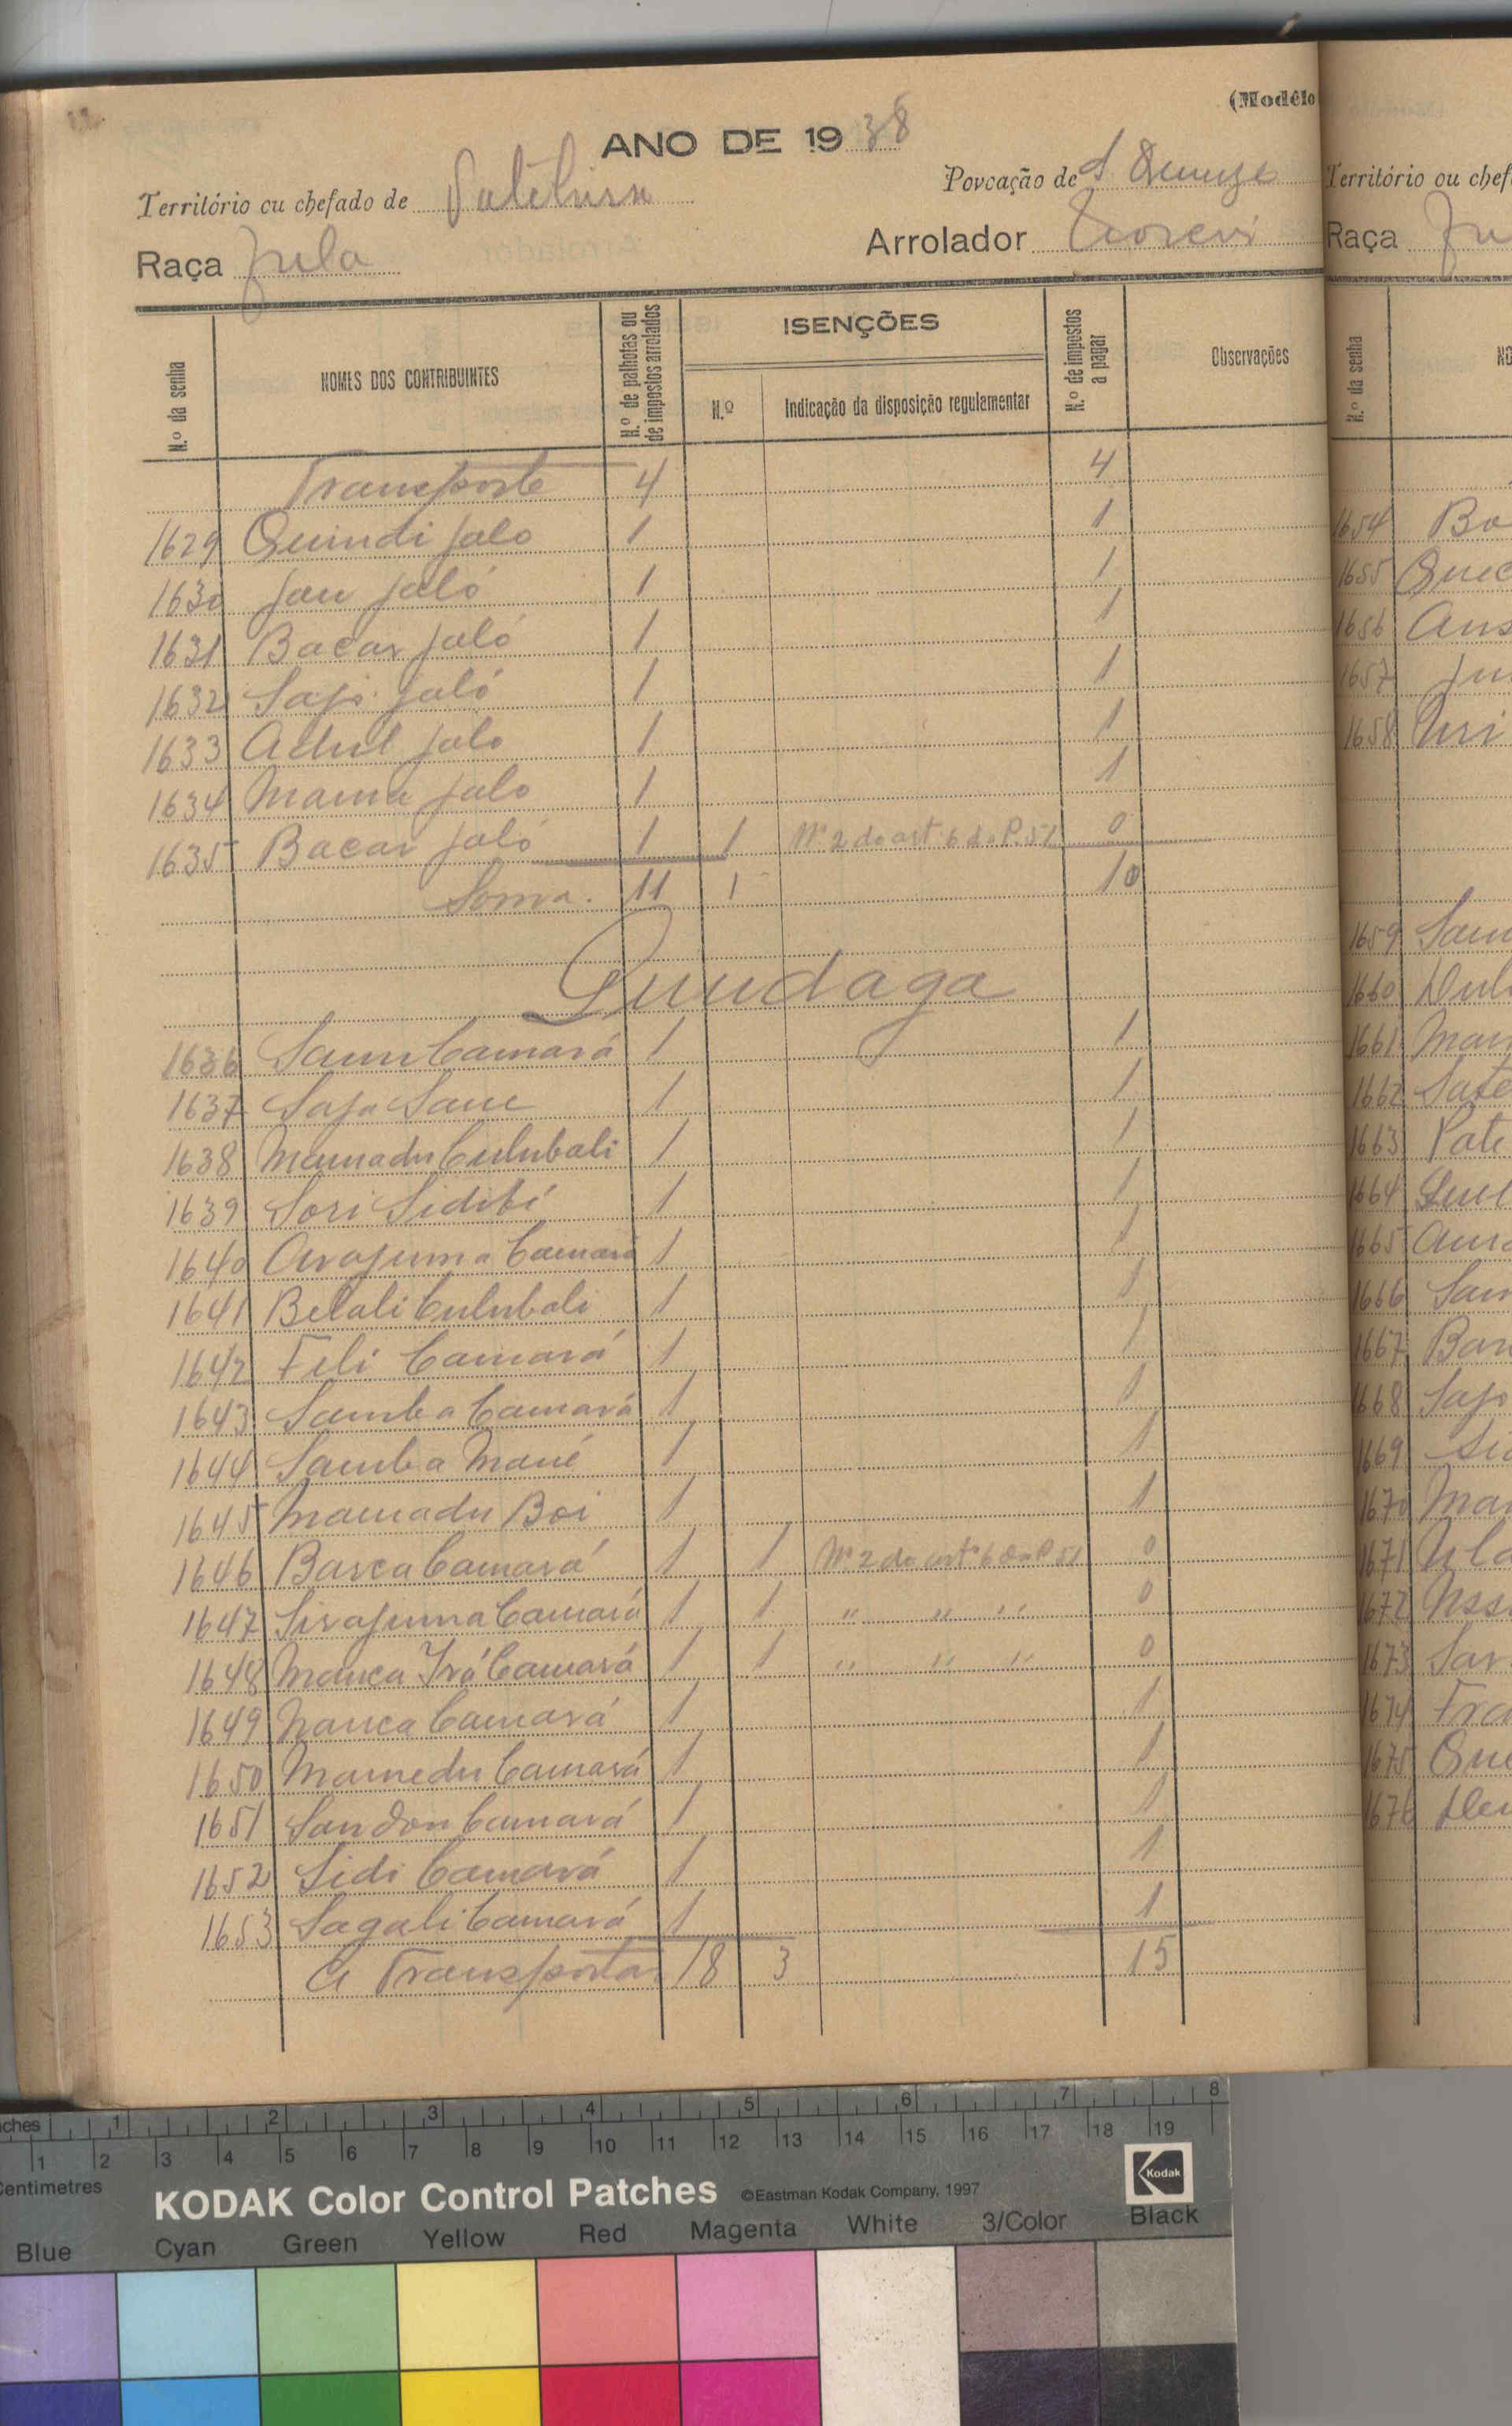 (Modêlo
ANO DE 1938
Território ou chefado de
Povoação de
Raça Fula
Arrolador
N.º da senha
NOMES DOS CONTRIBUINTES
N.º de palhotas ou de impostos arrolados
ISENÇÕES
N.º
Indicação da disposição regulamentar
N.º de impostos a pagar
Observações
Transporte 4 4
1629 Quindi Jaló 1 1
1630 Jau Jaló 1 1
1631 Bacar Jaló 1 1
1632 Sajo Jaló 1 1
1633 Jalo 1 1
1634 Mama Jalo 1 1
1635 Bacar Jaló 1 1 Nº 2 do art 6 do P. 51 0
Soma. 11 1 10
1636 Camará 1 1
1637 Saja Sane 1 1
1638 Mamadu Culubali 1 1
1639 Sori Sidibi 1 1
1640 Arafuma Camará 1 1
1641 Belali Culubali 1 1
1642 Fili Camará 1 1
1643 Samba Camará 1 1
1644 Samba Mané 1 1
1645 Mamadu Boi 1 1
1646 Camará 1 1 Nº 2 do artº 6 do P 51 0
1647 Sirafuma Camará 1 1 " " " 0
1648 Camará 1 1 " " " 0
1649 Nanca Camará 1 1
1650 Mamedu Camará 1 1
1651 Sandon Camará 1 1
1652 Sidi Camará 1 1
1653 Sagali Camará 1 1
A Transportar 18 3 15
Território ou chef
Raça Fu
N.º da senha
NO
1654 Bo
1655 Quec
1656 Ans
1657
1658
1659 Sam
1660
1661 Mam
1662
1663 Pate
1664
1665
1666 Sam
1667 Bar
1668 Sajo
1669
1670 Mam
1671
1672
1673 Sar
1674 Fra
1675 Que
1676
ches 1 2 3 4 5 6 7 8
1 2 3 4 5 6 7 8 9 10 11 12 13 14 15 16 17 18 19
Centimetres
KODAK Color Control Patches ©Eastman Kodak Company, 1997
Kodak
Blue Cyan Green Yellow Red Magenta White 3/Color Black